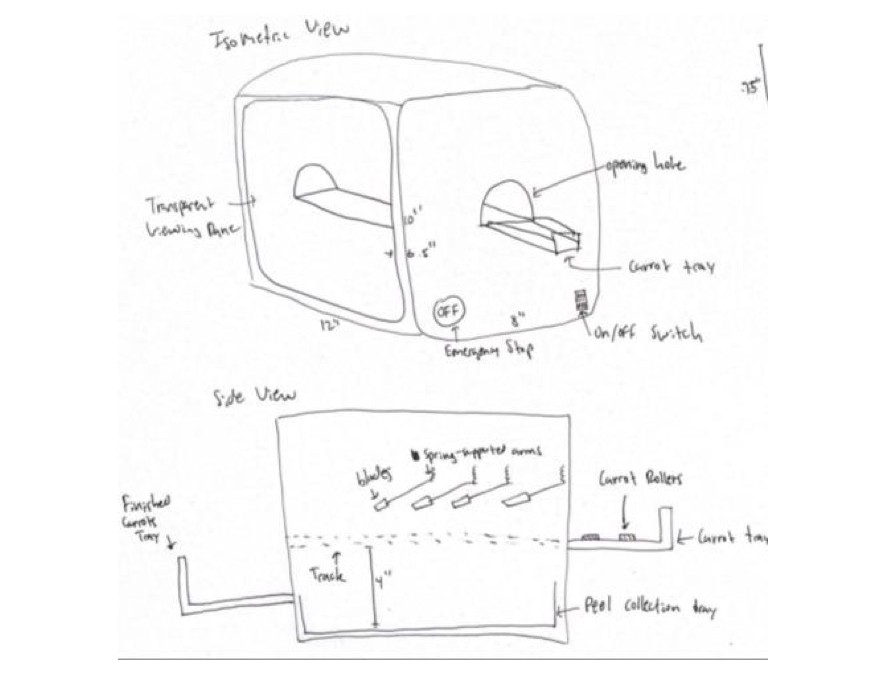 Isometric View
.75"
opening hole
Transparent
Viewing Pane
10"
6.5"
Carrot tray
OFF
12"
8"
On/off Switch
Emergency Stop
Side View
Spring-supported arms
blades
Carrot Rollers
Finished
Carrots
Tray
Carrot tray
Track
4"
Peel collection tray